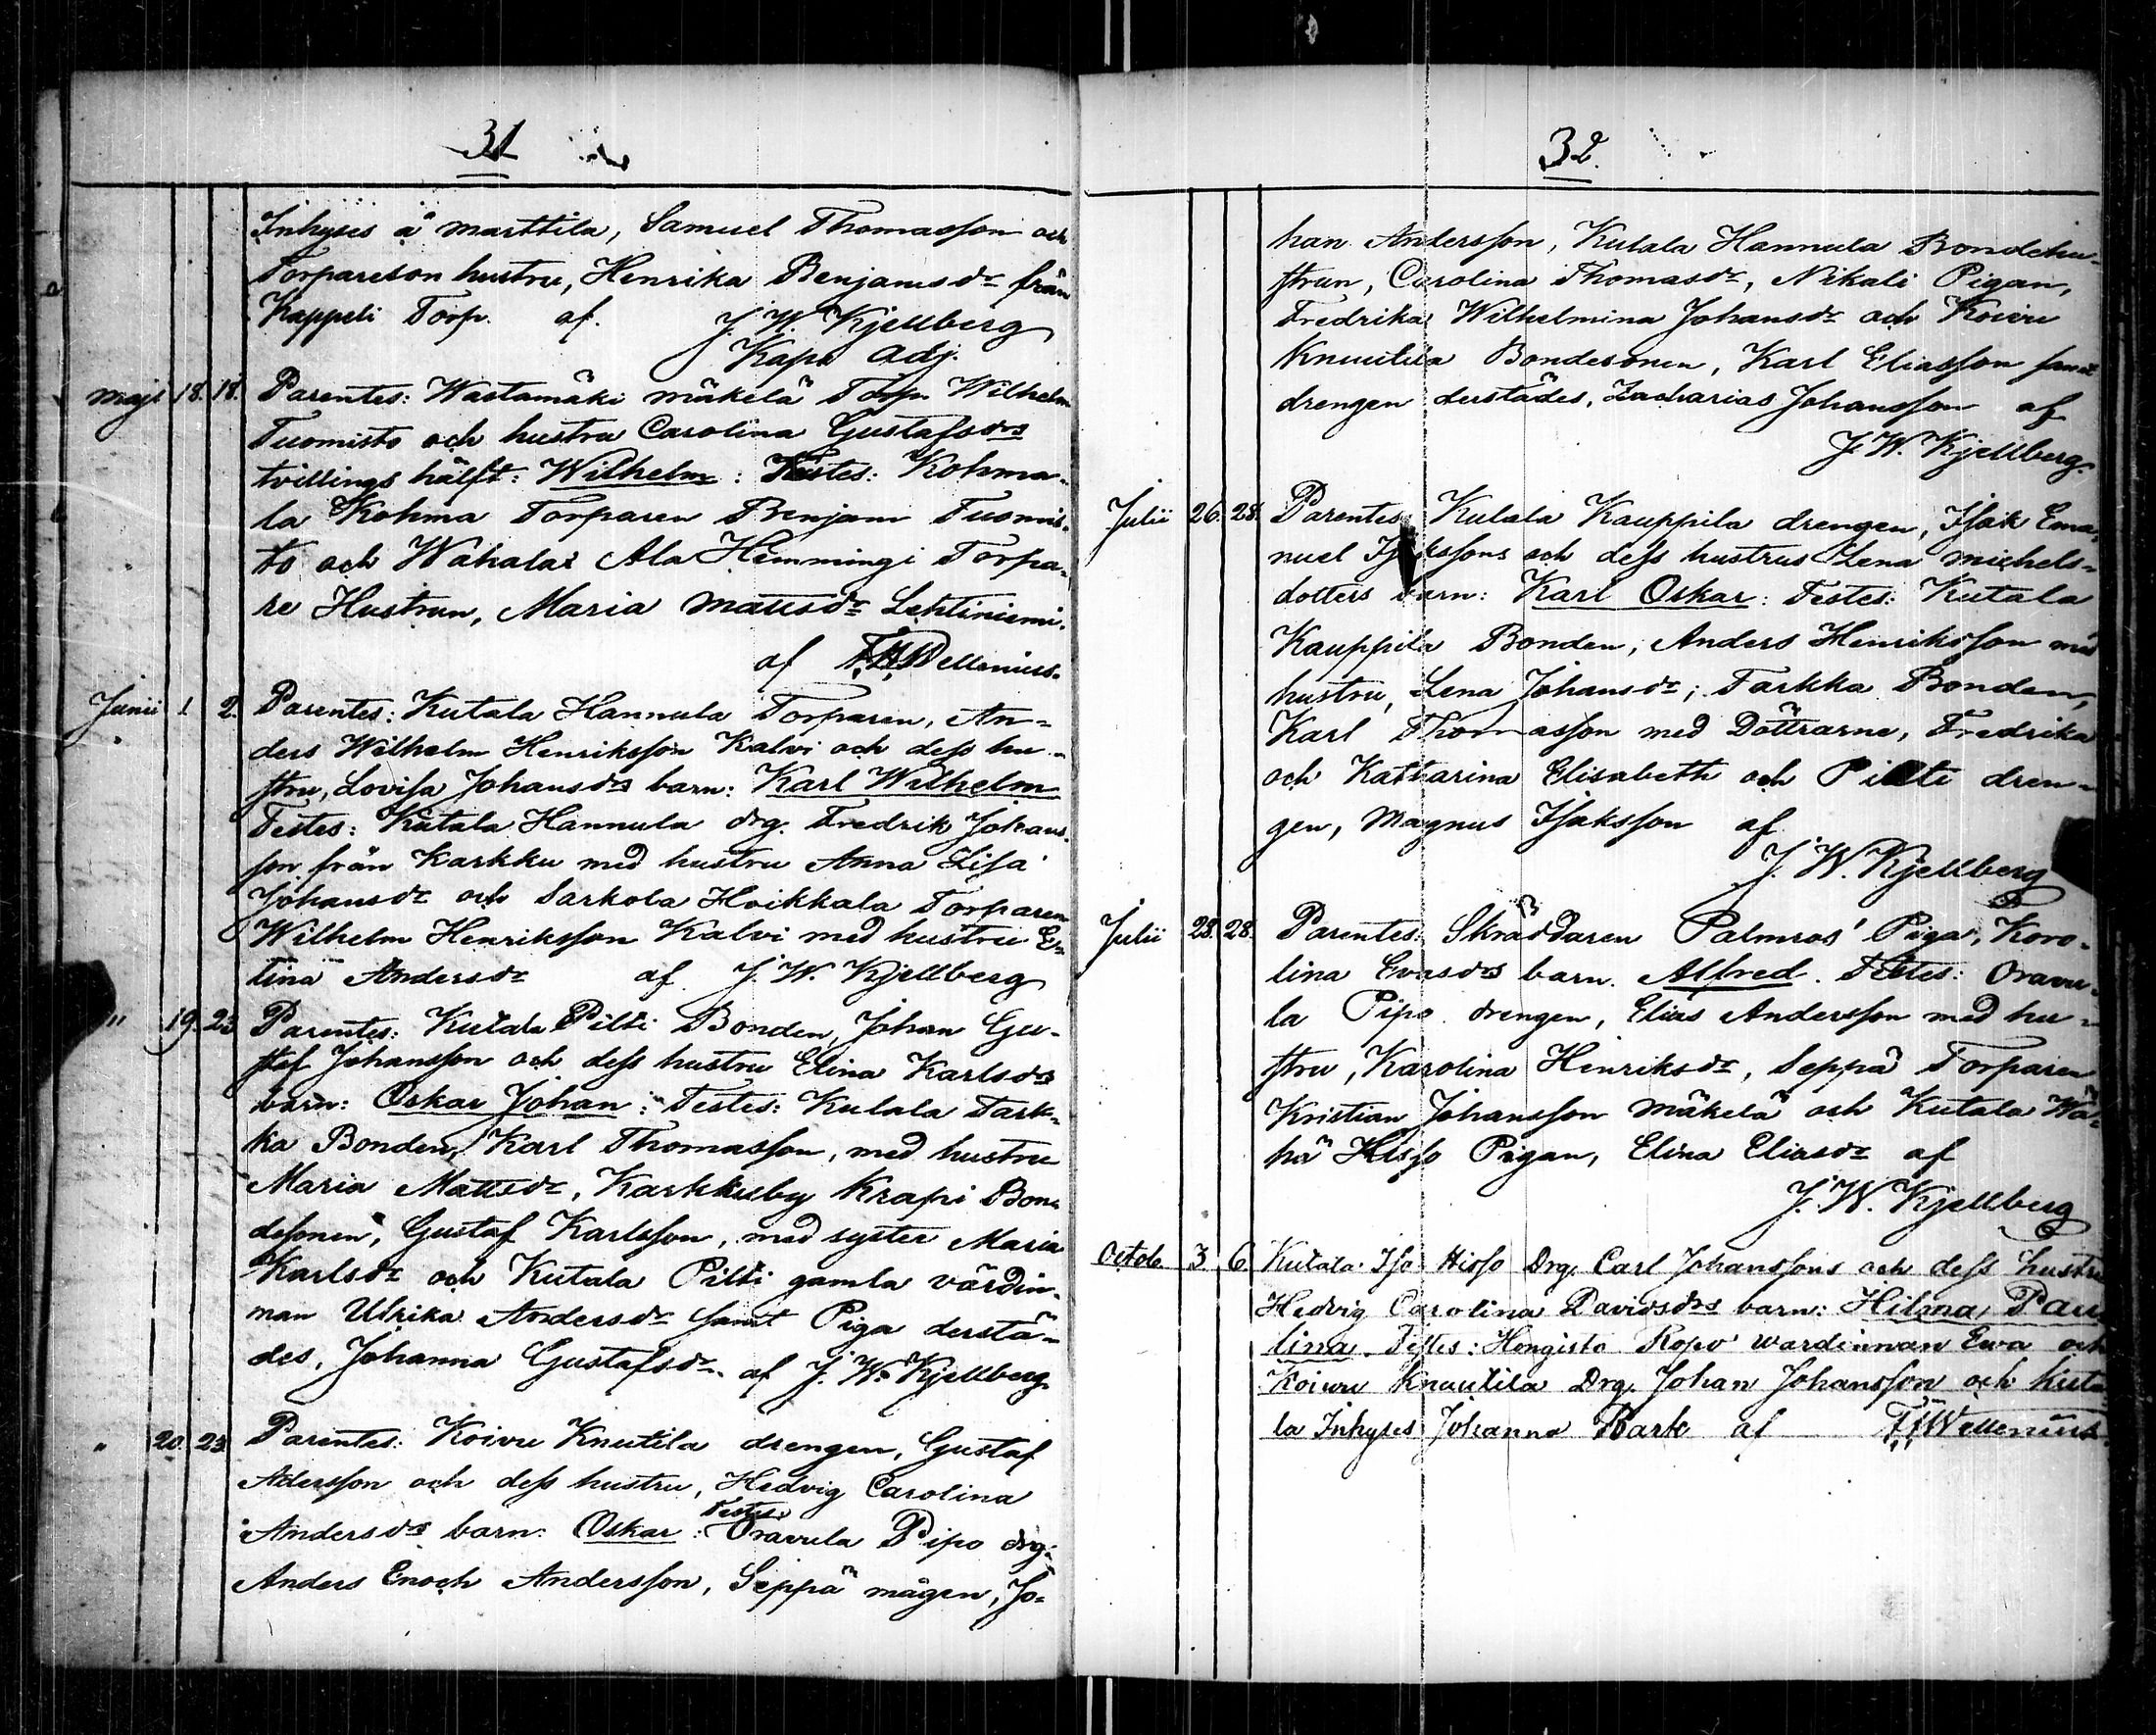 31
Inhyses å Marttila, Samuel Thomasson och
Torpareson hustru, Henrika Benjamsdr från
Kappeli Torp. af. J. W. Kjellberg
Kaps Adj.
Maji 18. 18. Parentes: Wastamäki Mäkelä Torp. Wilhelm
Tuomisto och hustru Carolina Gustafsdrs
tvillings hälft: Wilhelm: Testes: Kohma-
la Kohma Torparen Benjam Tuomis-
to och Wahalai Ala Hemmingi Torpa-
re Hustrun, Maria Mattsdr Lehtiniemi.
af Wellenius.
Junii 1 2. Parentes: Kutala Hannula Torparen, An-
ders Wilhelm Henriksson Kalvi och dess hu-
stru, Lovisa Johansdrs barn: Karl Wilhelm
Testes: Kutala Hannula drg. Fredrik Johans-
son från Karkku med hustru Anna Lisa
Johansdr och Sarkola Hoikkala Torparen
Wilhelm Henriksson Kalvi med hustru Er-
tina Andersdr af J. W. Kjellberg
" 19. 23 Parentes: Kutala Pilti Bonden, Johan Gu-
staf Johansson och dess hustru Elina Karlsdrs
barn: Oskar Johan: Testes: Kutala Tark-
ka Bonden, Karl Thomasson, med hustru
Maria Mattsdr, Karkkuby Krapi Bon-
desonen, Gustaf Karlsson, med syster Maria
Karlsdr och Kutala Pilti gamla värdin-
nan Ulrika Andersdr samt Piga derstä-
des, Johanna Gustafsdr. af J. W. Kjellberg
" 20. 23 Parentes: Koivu Knutila drengen, Gustaf
Adersson och dess hustru, Hedvig Carolina
Testes:
Andersdrs barn: Oskar: Oravula Pipo drg.
Anders Enoch Andersson, Seppä mågen, Jo-
32.
han Andersson, Kutala Hannula Bondehu-
strun, Carolina Thomasdr, Nikali Pigan,
Fredrika Wilhelmina Johansdr och Koivu
Knuutila Bondesonen, Karl Eliasson samt
drengen derstädes, Zacharias Johansson af
J. W. Kjellberg.
Julii 26. 28. Parentes: Kutala Kauppila drengen, Isak Ema-
nuel Isakssons och dess hustrus Lena Michels-
dotters barn: Karl Oskar: Testes: Kutala
Kauppila Bonden, Anders Henriksson med
hustru, Lena Johansdr; Tarkka Bonden,
Karl Thomasson med Döttrarne, Fredrika
och Katharina Elisabeth och Pilti dren-
gen, Magnus Isaksson af
J. W. Kjellberg
Julii 28. 28. Parentes: Skräddaren Palmros' Piga, Karo-
lina Evasdrs barn. Alfred. Testes: Oravu-
la Pipo drengen, Elias Andersson med hu-
stru, Karolina Henriksdr, Seppä Torparen
Kristian Johansson Mäkelä och Kutala Wä-
hä Hisso Pigan, Elina Eliasdr af
J. W. Kjellberg
Octob. 3 6 Kutala Iso Hisso Drg. Carl Johanssons och dess hustru
Hedvig Carolina Davidsdrs barn: Hilma Pau-
lina. Testes: Hongisto Ropo wardinnan Ewa och
Koivu Knuutila Drg. Johan Johansson och Kuta-
la Inhyses Johanna Kark af Wellenius.